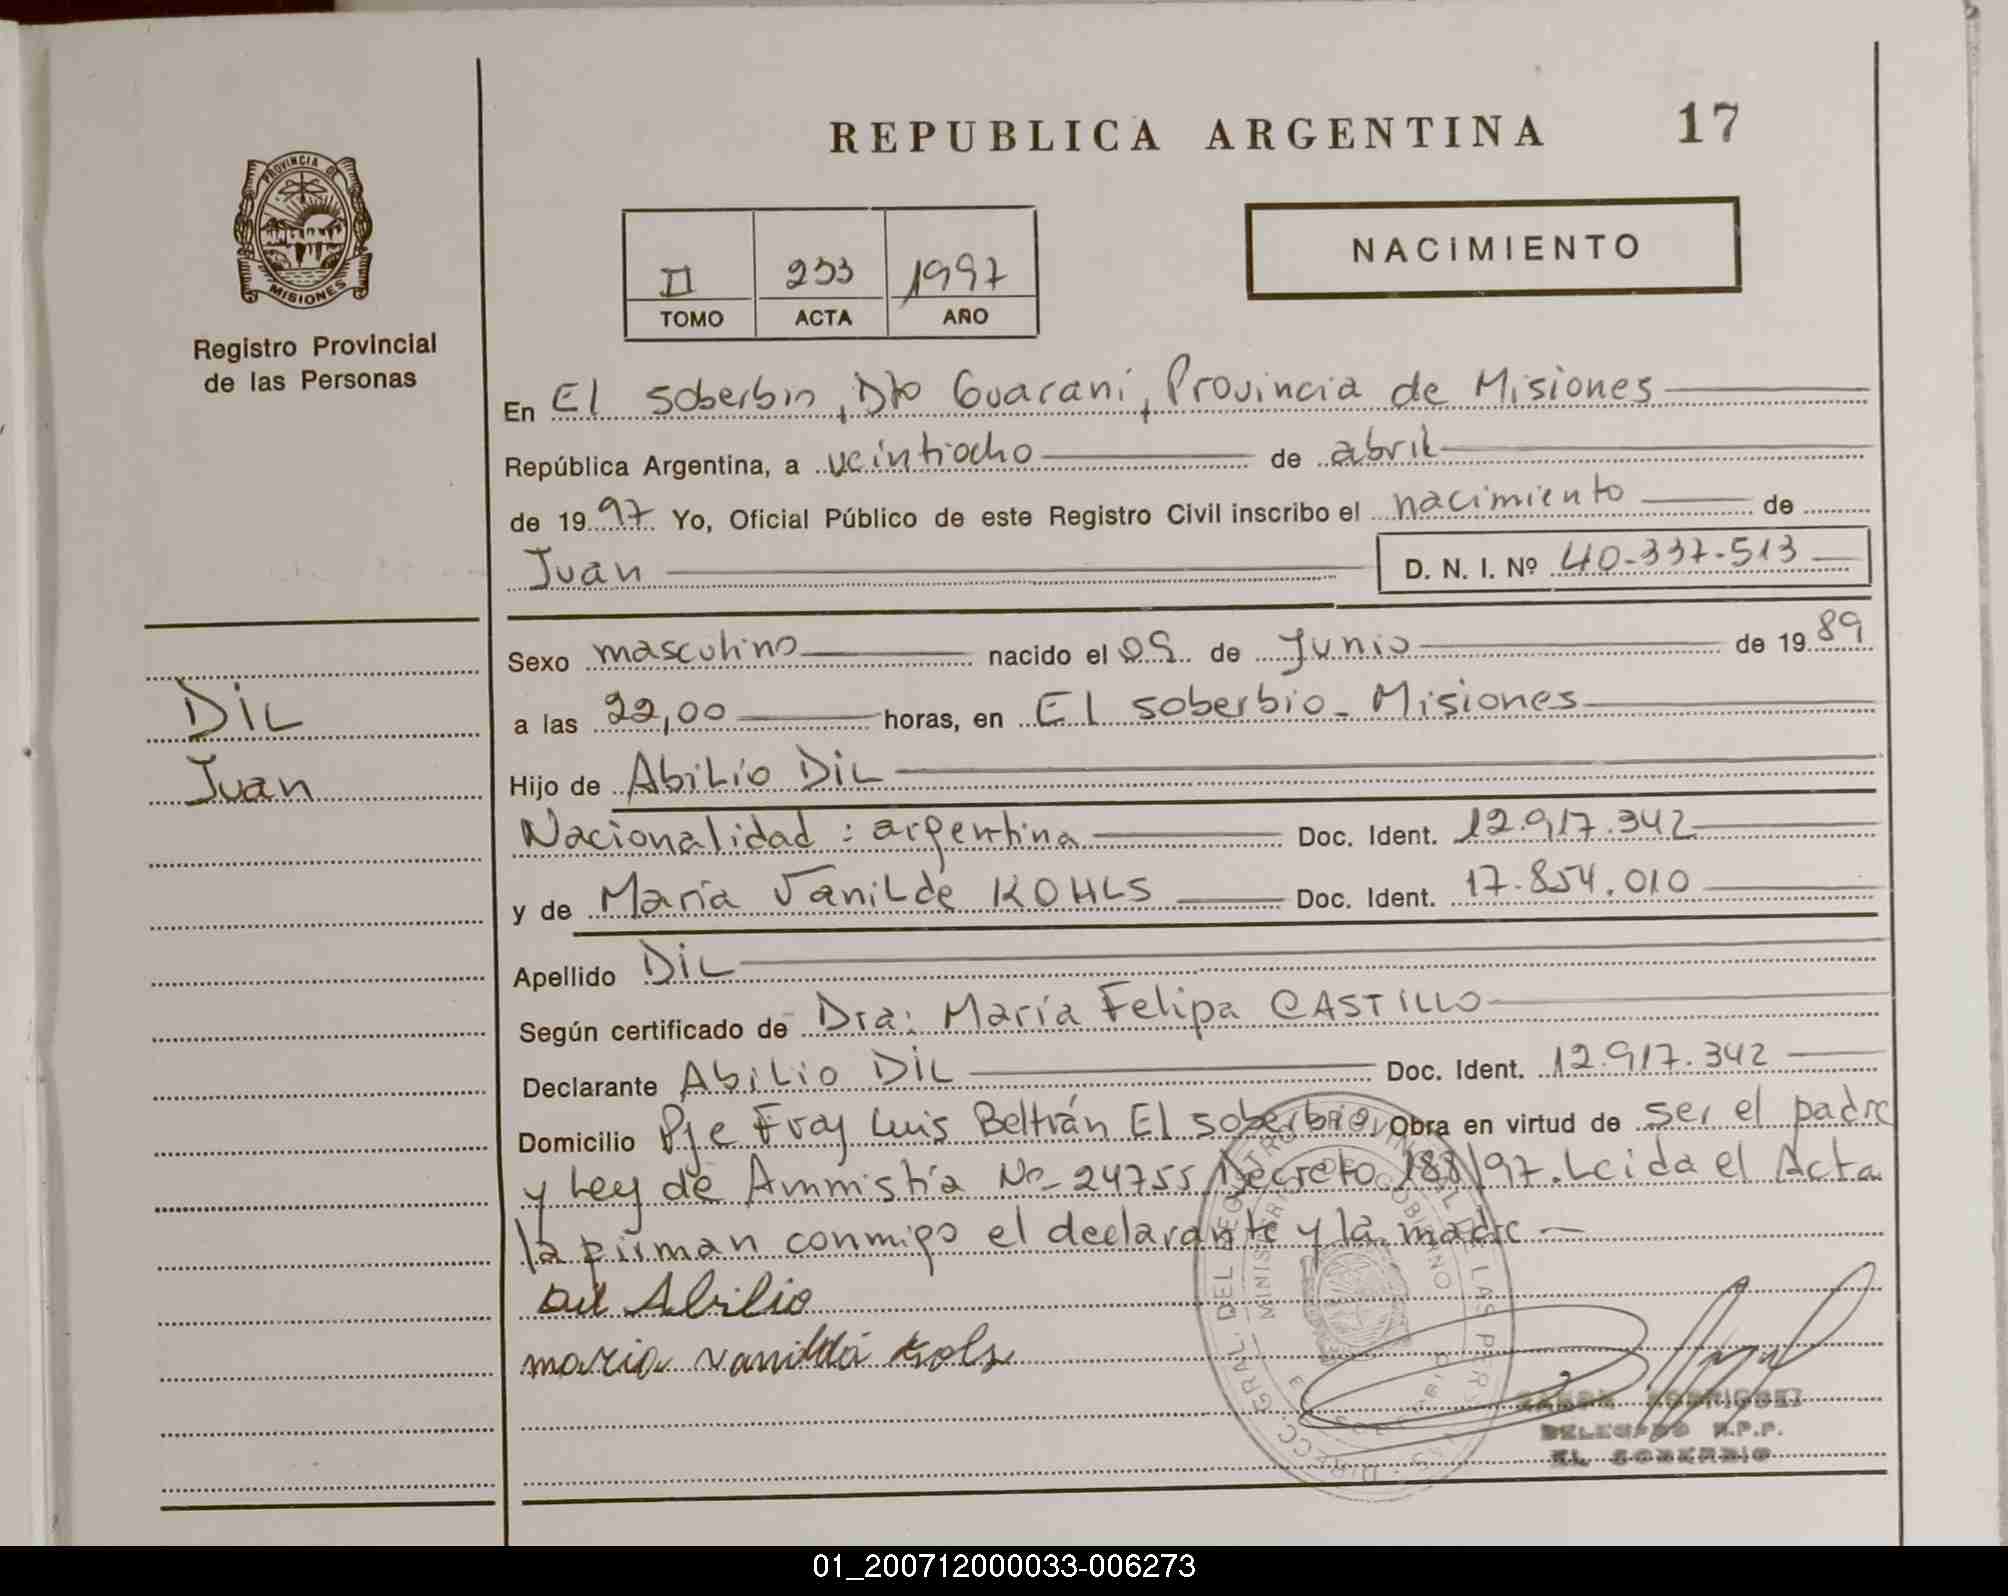 REPUBLICA ARGENTINA 17
PROVINCIA DE
MISIONES
Registro Provincial
de las Personas
NACIMIENTO
II 233 1997
TOMO ACTA AÑO
En El soberbio, Dto Guaraní, Provincia de Misiones
República Argentina, a veintiocho de abril
de 1997 Yo, Oficial Público de este Registro Civil inscribo el nacimiento de
Juan D. N. I. Nº 40-337-513
Sexo masculino nacido el 09 de Junio de 1989
a las 22,00 horas, en El soberbio - Misiones
Hijo de Abilio DIL
Nacionalidad: argentina Doc. Ident. 12.917.342
y de María Vanilde KOHLS Doc. Ident. 17.854.010
Apellido DIL
Según certificado de Dra: María Felipa CASTILLO
Declarante Abilio DIL Doc. Ident. 12.917.342
Domicilio Pje Fray Luis Beltrán El soberbio, Obra en virtud de ser el padre
y Ley de Ammistía Nº 24755 Decreto 188/97. Leida el Acta
la firman conmigo el declarante y la madre
DIL
Juan
Dil Abilio
maria vanilda kols
RODRIGUEZ
DELEGADO R.P.P.
EL SOBERBIO
01_200712000033-006273